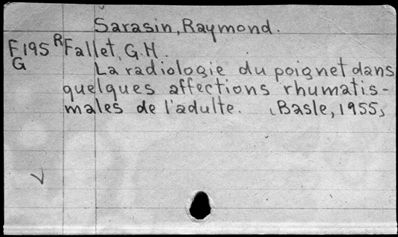 Sarasin, Raymond.
F195 R Fallet, G.H.
G La radiologie du poignet dans
quelques affections rhumatis-
males de l'adulte. (Basle, 1955)